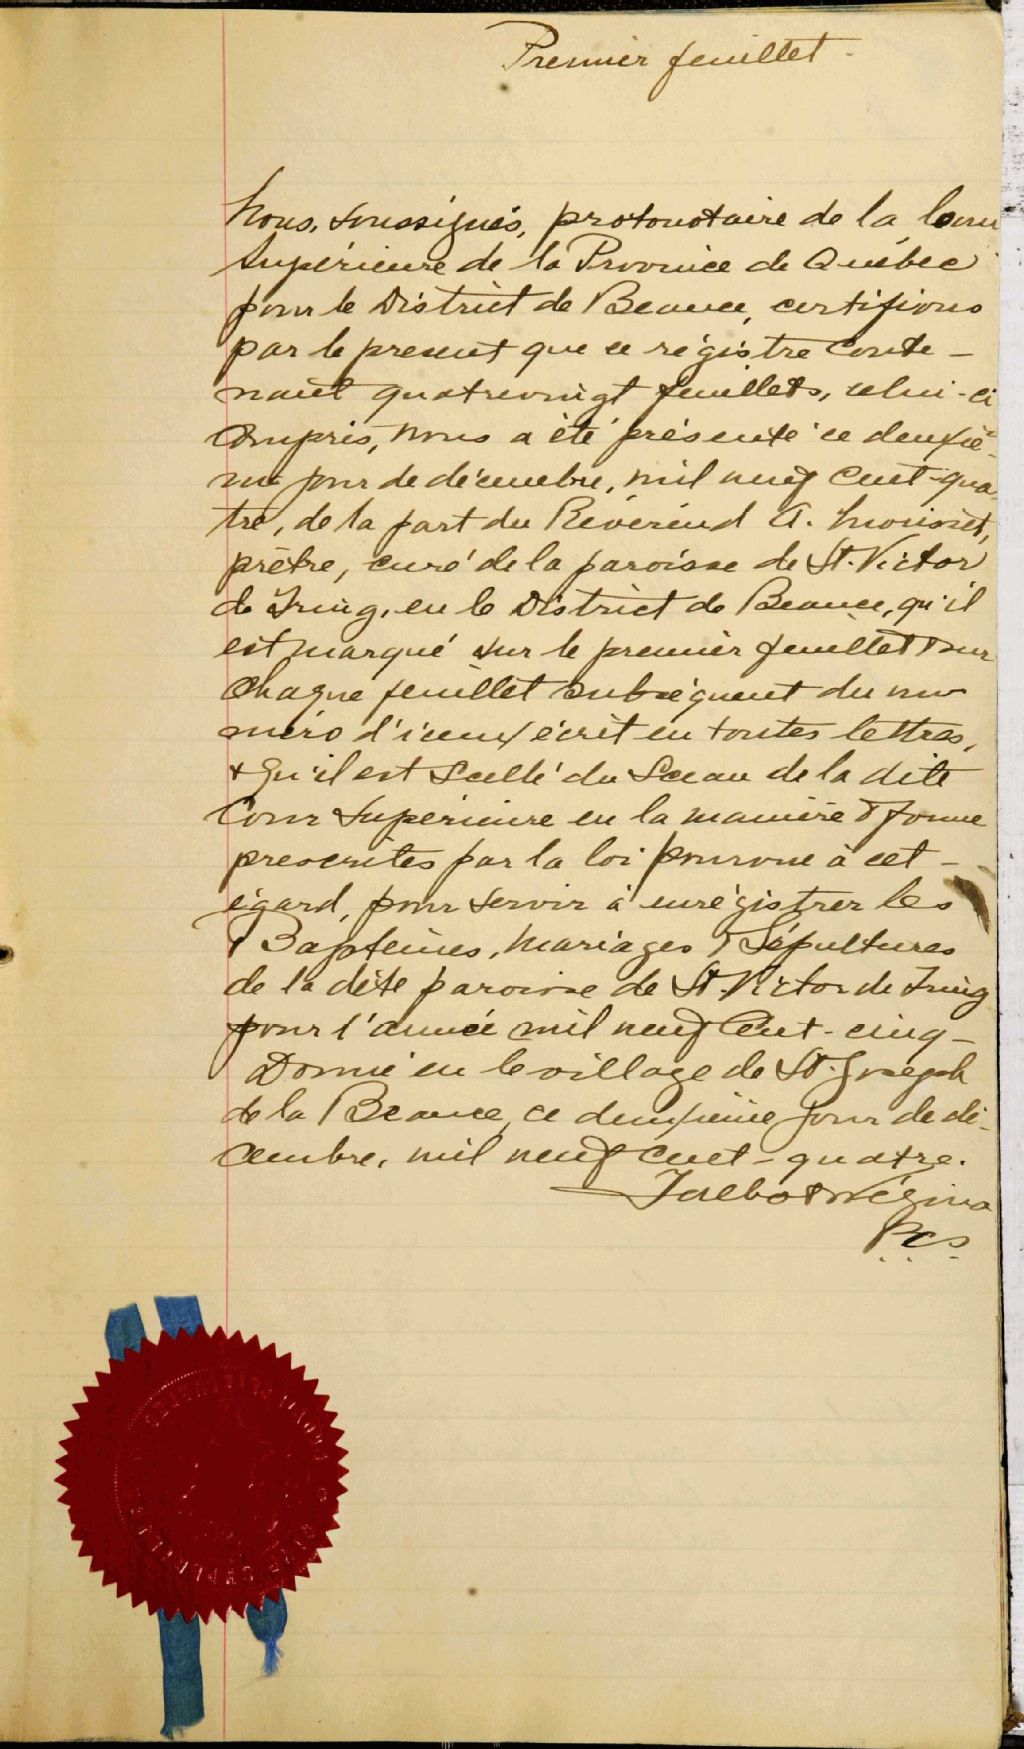 Premier feuillet -
Nous, soussignés, protonotaire de la Cour
Supérieure de la Province de Québec
pour le District de Beauce, certifions
par le présent que ce régistre conte -
nant quatrevingt feuillets, celui-ci
compris, nous a été présenté ce deuxiè-
me jour de décembre, mil neuf cent-qua-
tre, de la part du Révérend A.
prêtre, curé de la paroisse de St. Victor
de Tring, en le District de Beauce, qu'il
est marqué sur le premier feuillet & sur
chaque feuillet subséquent du nu-
méro d'iceux écrit en toutes lettres,
& qu'il est scellé du Sceau de la dite
Cour Supérieure en la manière & forme
prescrites par la loi pourvue à cet -
égard, pour servir à enrégistrer les
Baptêmes, Mariages & Sépultures
de la dite paroisse de St. Victor de Tring
pour l'année mil neuf cent-cinq -
Donné en le village de St. Joseph
de la Beauce, ce deuxième jour de dé-
cembre, mil neuf cent-quatre.
Talbot & Vézina
P.C.S.